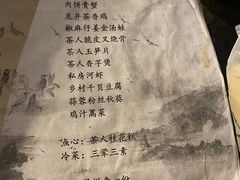 肉饼膏蟹
龙井茶香鸡
椒麻仔姜金汤蛙
茶人脆皮叉烧骨
茶人玉笋片
茶人香芋煲
私房河虾
乡村千页豆腐
蒜蓉粉丝秋葵
鸡汁蒿菜
点心：茶人桂花糕
冷菜：三荤三素